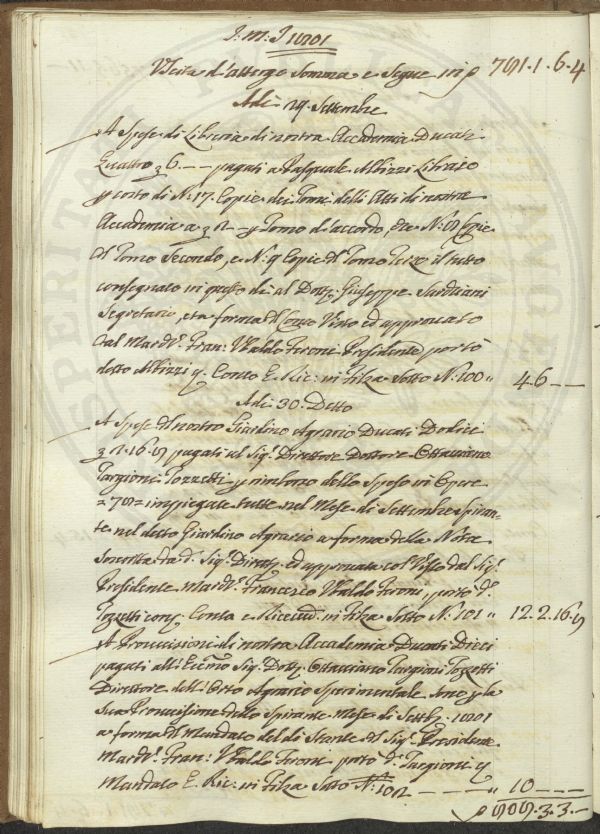 J. M. J 1801
Resta di attergo Somma e Segue in ρ 781.1.6.4
Adi 29. Settembre
A Spese di Libreria di nostra Accademia Ducati
Quattro £ 6.-- pagati a Pasquale Albizzi Libraio
p costo di N. 17. Copie dei Tomi delli Atti di nostra
Accademia a £ 2 - p Tomo d'accordo, cioè N. 8 Copie
del Tomo Secondo, e N. 9 Copie del Tomo Terzo il tutto
consegnato in questo dì al Dott. Giuseppe Sarchiani
Segretario, e a forma del Conto Visto ed approvato
dal March. Fran. Ubaldo Feroni Presidente portò
detto Albizzi p. Conto E. Ric: in Filza Sotto N. 100 " 4.6 --
Adi 30. Detto
A Spese del nostro Giardino Agrario Ducati Dodici
£ 2.16.8 pagati al Sig. Direttore Dottore Ottaviano
Targioni Tozzetti p rimborso dello Speso in Opere
= 78 = impiegate tutte nel Mese di Settembre Spiran-
te nel detto Giardino Agrario a forma della Nota
Soscritta da d. Sig. Dirett. ed approvata col Visto dal Sig.
Presidente March. Francesco Ubaldo Feroni, portò d.
Tozzetti cont. Conto e Ricevut. in Filza Sotto N. 101 " 12.2.16.8
A Provvisioni di nostra Accademia Ducati Dieci
pagati all'Ecc.mo Sig. Dott. Ottaviano Targioni Tozzetti
Direttore dell'Orto Agrario Sperimentale Sono p la
Sua Provvisione dello Spirante Mese di Settb. 1801
a forma del Mandato del dì Stante del Sig. Presidente
March. Fran. Ubaldo Feroni portò d. Targioni p
Mandato E. Ric: in Filza Sotto N. 102 ---- " 10 ---
ρ 808.3.3.-